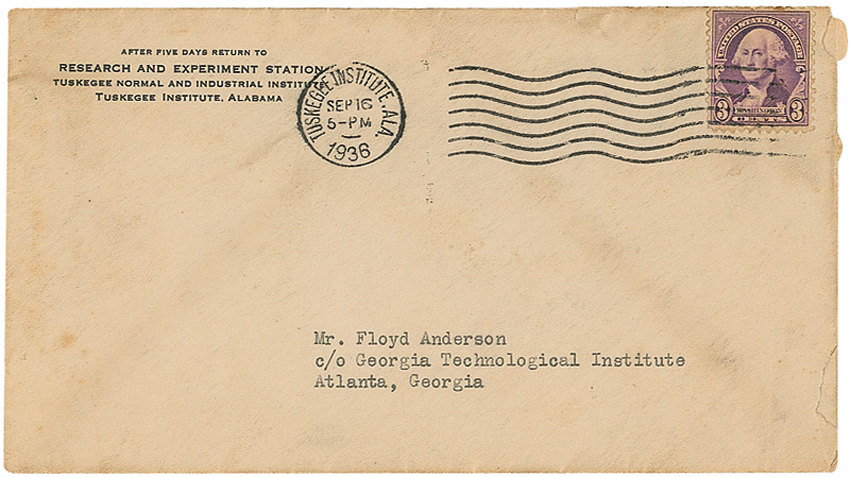 AFTER FIVE DAYS RETURN TO
RESEARCH AND EXPERIMENT STATION
TUSKEGEE NORMAL AND INDUSTRIAL INSTITUTE
TUSKEGEE INSTITUTE, ALABAMA
TUSKEGEE INSTITUTE, ALA.
SEP 16
5-PM
1936
UNITED STATES POSTAGE
3 WASHINGTON 3
CENTS
Mr. Floyd Anderson
c/o Georgia Technological Institute
Atlanta, Georgia